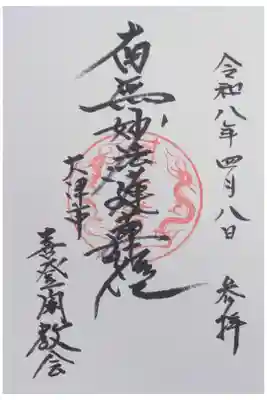 令和八年四月八日　参拝
南無妙法蓮華経
大津市
喜登開教会